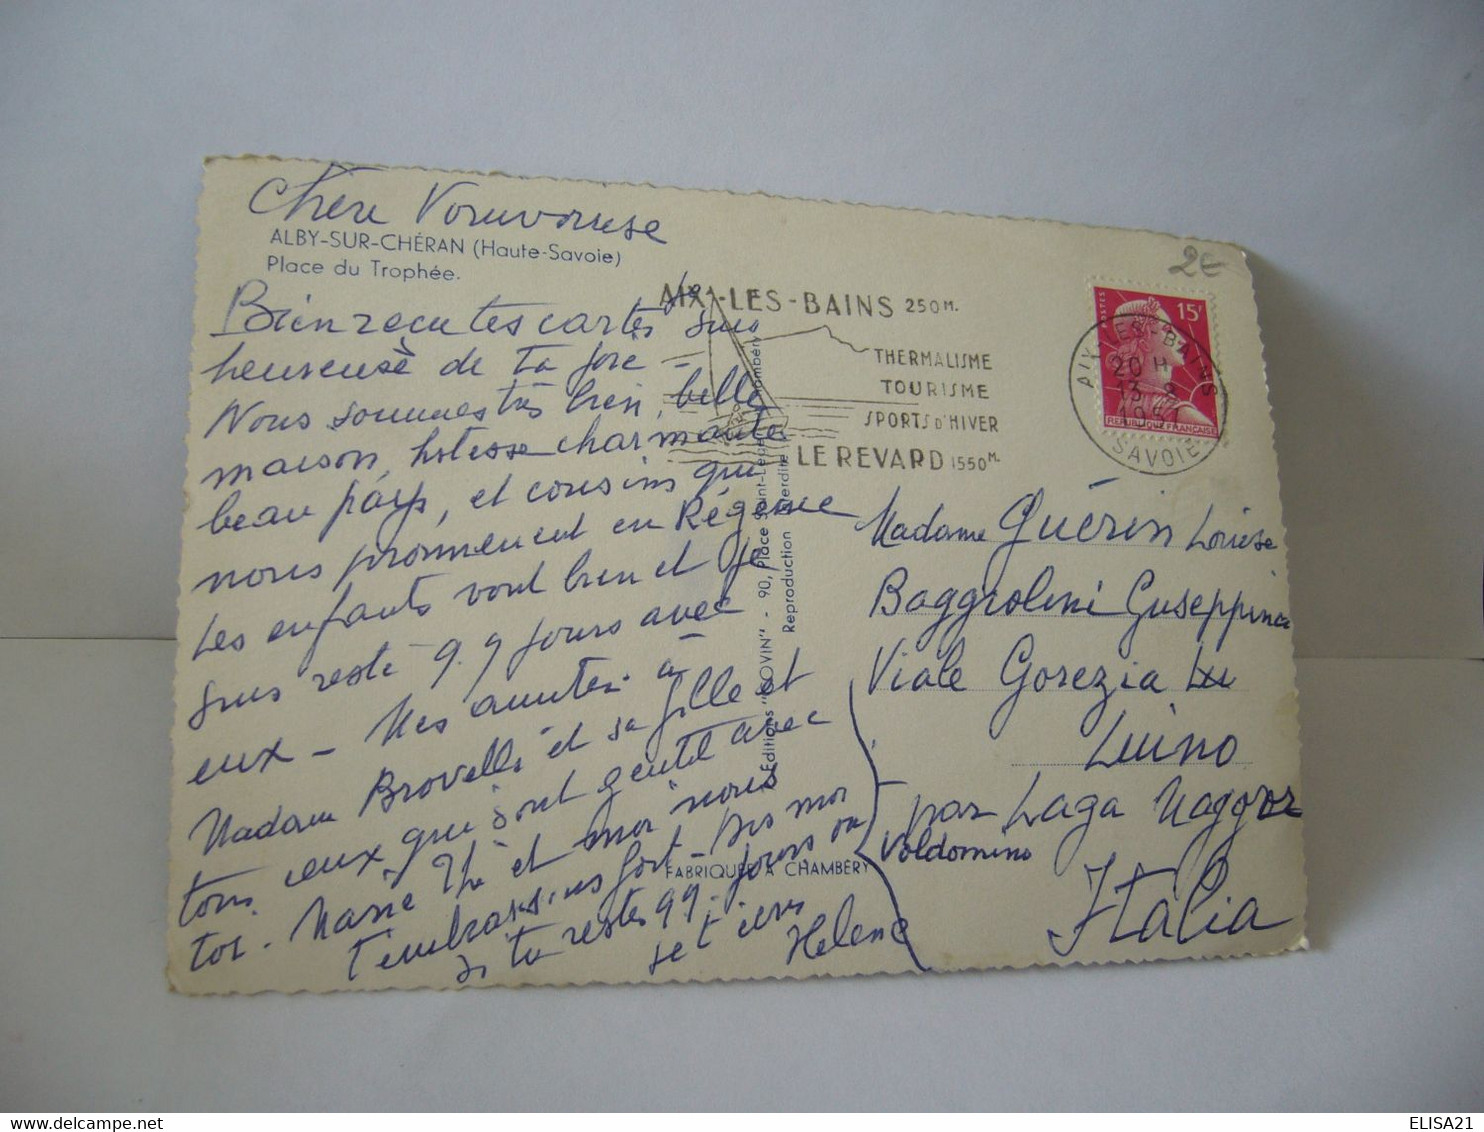 Chère
ALBY-SUR-CHÉRAN (Haute-Savoie)
Place du Trophée.
Bien reçu tes cartes suis
heureuse de ta joie -
Nous sommes très bien, belle
maison, hotesse charmante
beau pays, et cousins qui
nous promènent en
Les enfants vont bien et je
suis resté 99 jours avec
eux - Mes amitiés à
Madame Brovelli et sa fille et
tous ceux qui sont gentil avec
toi. Marie Thé et moi nous
t'embrassons fort - Dis moi
si tu restes 99 jours ou
Helene
AIX-LES-BAINS 250 M.
THERMALISME
TOURISME
SPORTS D'HIVER
LE REVARD 1550 M.
POSTES
15F
REPUBLIQUE FRANÇAISE
AIX-LES-BAINS
20 H
13-8
1957
SAVOIE
2€
Editions "GOVIN" - 90, Place Saint-Léger Chambéry
Reproduction Interdite
FABRIQUÉE A CHAMBÉRY
Madame Guérin Louise
Baggiolini Giuseppina
Viale Gorezia
Luino
par Laga Maggore
Voldomino
Italia
ELISA21